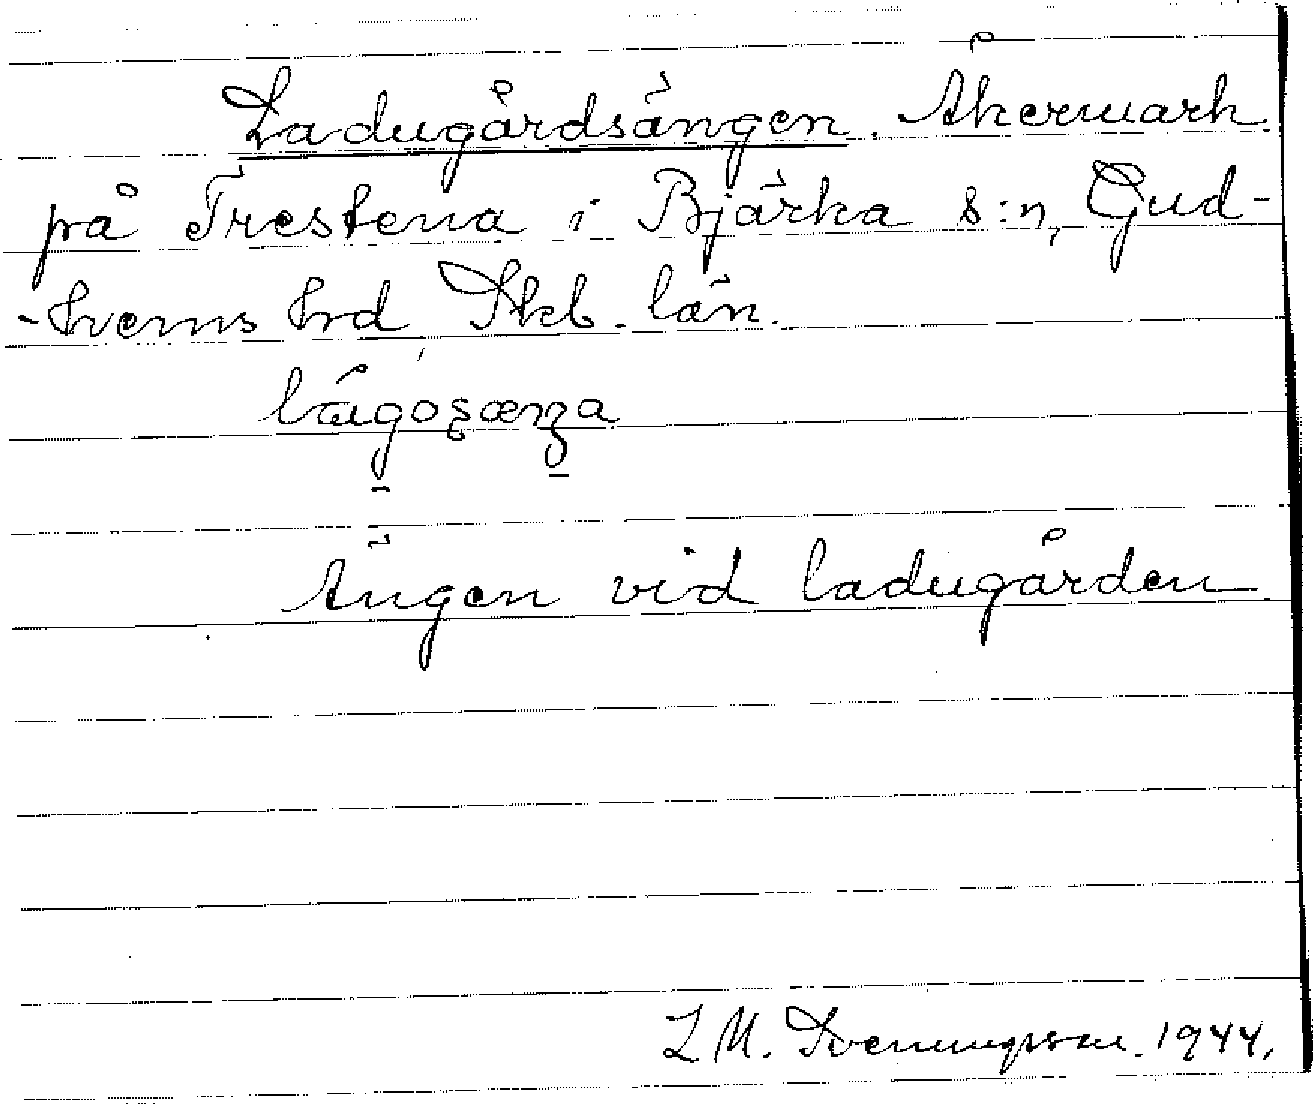 Ladugårdsängen. Åkermark
på Trestena i Bjärka s:n, Gud-
-hems hrd Skb. län.
Ängen vid ladugården
L M. Svenungsson. 1944.